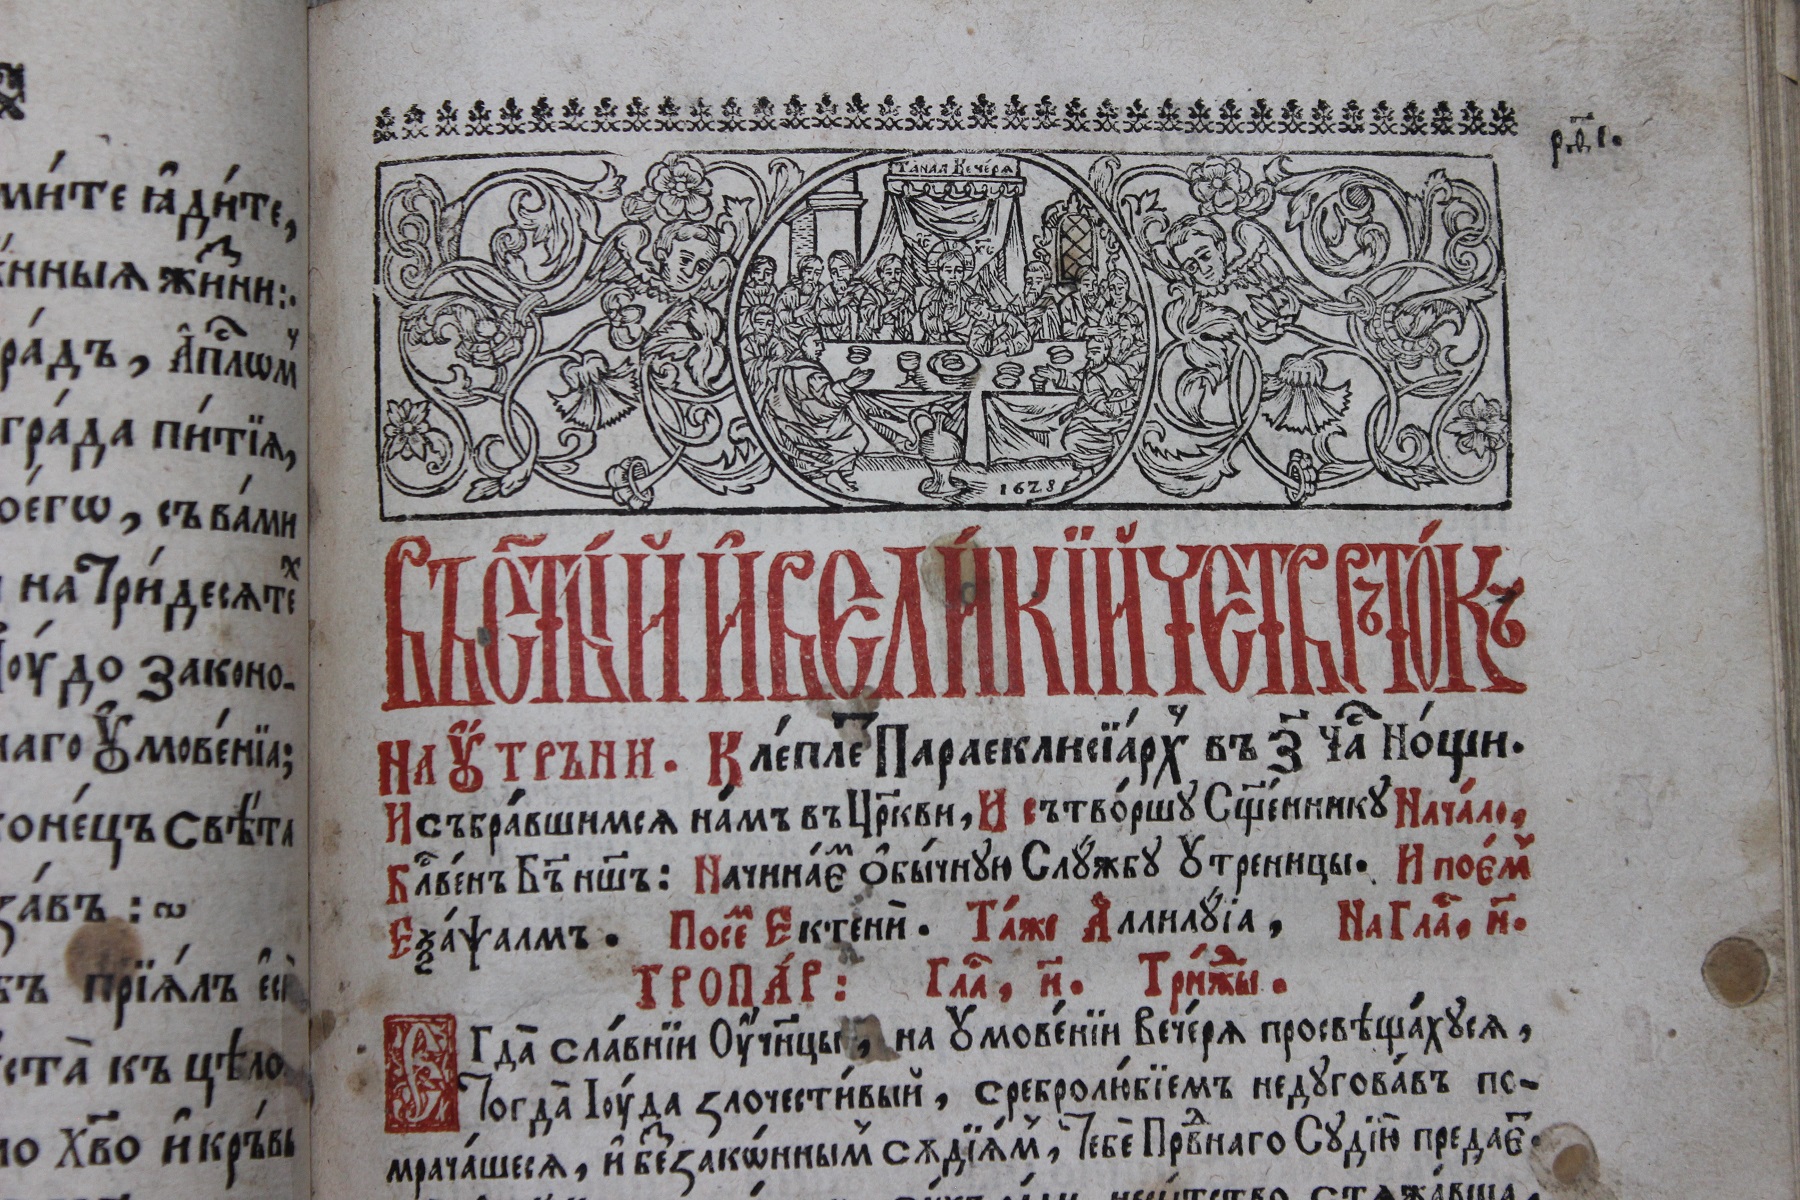 ми́те і҆ади́те,
рáдъ, А҆пⷭ҇лѡмⷱ҇
гра́да пи́тїѧ,
оегѡ̀, съ ва́ми
и на Три́десѧтеⷯ
Іоу́до законо-
наго Оу҆мове́нїа;
коне́цъ свѣ́та
за́въ :
прїѧ́лъ є҆сѝ
ста̀ къ цѣло-
мо Хв҃о и҆ кръ́вь
Таѧнаѧ Вече́рѧ
І҃С Х҃С
1628
ВЪ СТ҃Ы́Й И҆ ВЕЛИ́КЇЙ ЧЕТВЕРТО́КЪ
На Оу҆трьни. Кле́пле Параеклисїа́рхⷱ҇ въ З҃ ча̑ но́щи.
И събра́вшимсѧ на́мъ въ Цр҃кви, И сътво́ршу Сщ҃е́ннику Нача́ло,
Блⷭ҇ве́нъ Бг҃ъ нш҃ъ: Начина́еⷨ Обы́чную Слу́жбу Утреницы. И пое́мⷨ
Еѯа́ѱалмъ. Посеⷨ Ектенїѝ. Та́же Аллилу́їа, На Гла̑, и҃.
ТРОПА́Р: Гла̑, и҃. Три́жⷣы.
Егда̀ сла́внїи Оу҆чн҃цы, на Умове́нїи Вече́рѧ просвѣща́хусѧ,
Тогда̀ Іоу́да злочести́вый, сребролю́бїемъ недугова́въ по-
мрача́шесѧ, и҆ беззако́ннымъ сѫдїѧ́мⷨ, Тебѐ Прⷡ҇наго Судїю̀ предае́т.